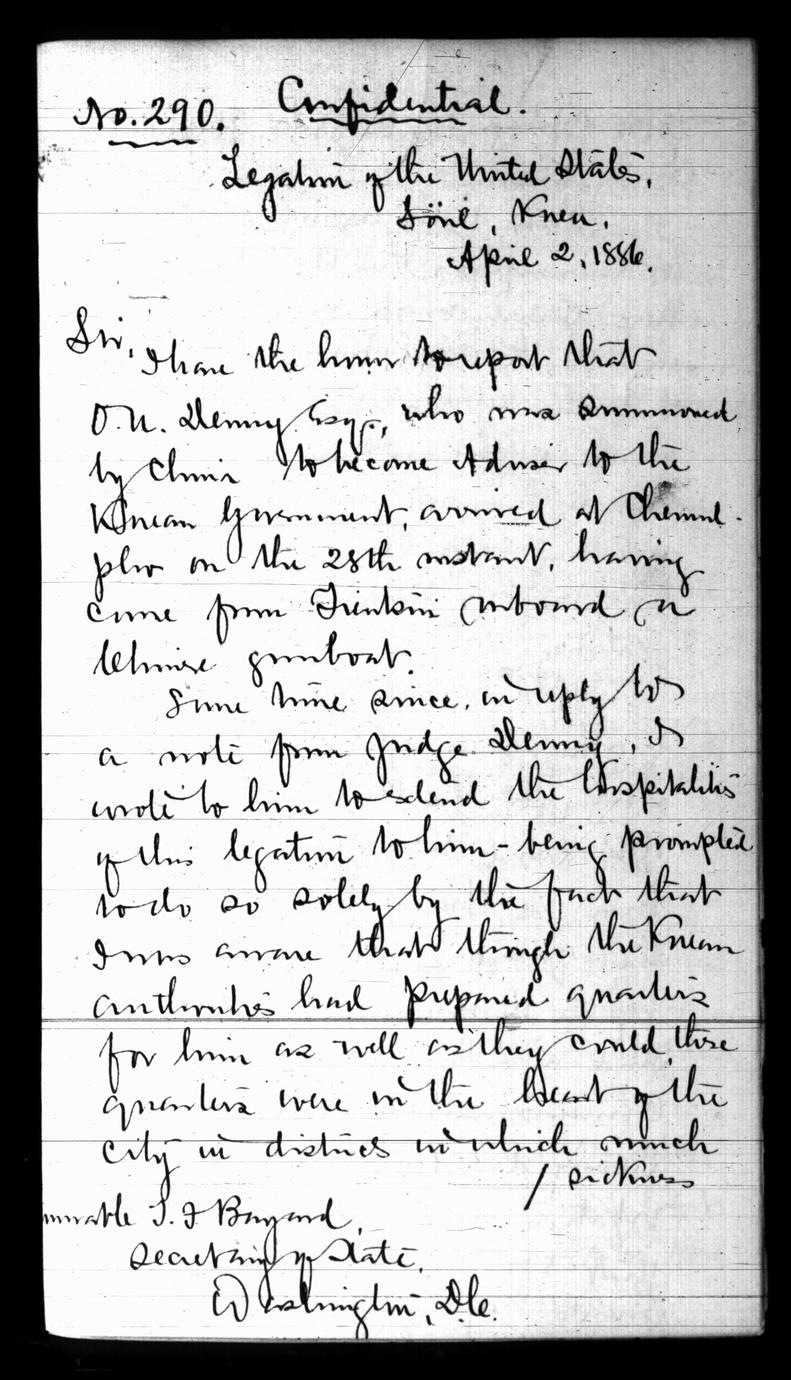 No. 290. Confidential.
Legation of the United States,
Söul, Korea,
April 2, 1886.
Sir,
I have the honor to report that
O. N. Denny Esq., who was summoned
by China to become Adviser to the
Korean Government, arrived at Chemul-
pho on the 28th instant, having
come from Tientsin onboard a
Chinese gunboat.
Some time since, in reply to
a note from Judge Denny, I
wrote to him to extend the hospitalities
of this legation to him - being prompted
to do so solely by the fact that
I was aware that though the Korean
authorities had prepared quarters
for him as well as they could, those
quarters were in the heart of the
city in districts in which much
/ sickness
Honorable T. F. Bayard,
Secretary of State,
Washington, D.C.